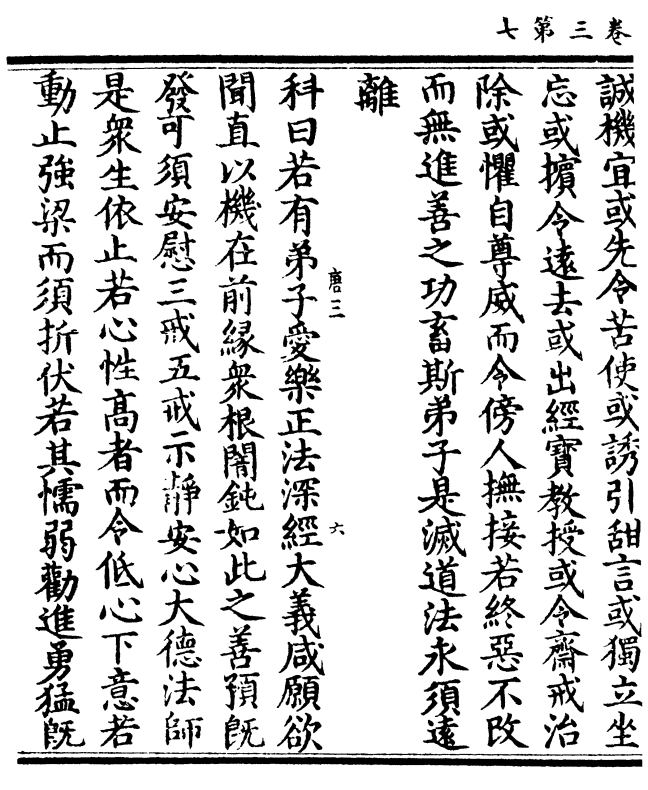 卷三第七
誠機宜或先令苦使或誘引甜言或獨立坐
忘或擯令遠去或出經寶教授或令齋戒治
除或懼自尊威而令傍人撫接若終惡不改
而無進善之功畜斯弟子是滅道法永須遠
離
科曰若有弟子愛樂正法深經大義咸願欲
唐三
六
聞直以機在前緣衆根闇鈍如此之善預旣
發可須安慰三戒五戒示靜安心大德法師
是衆生依止若心性高者而令低心下意若
動止強梁而須折伏若其懦弱勸進勇猛旣